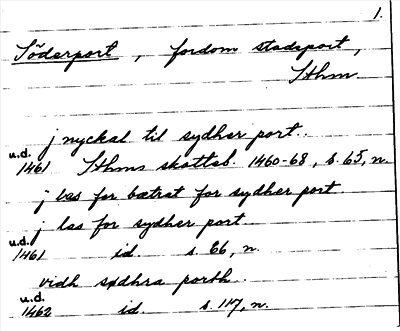 1.
Söderport, fordom stadsport,
Sthm
j nyckal til sydher port.
u.d.
1461 Sthms skotteb. 1460-68, s. 65, n.
j las for bætrat for sydher port
j las for sydher port.
u.d.
1461 id. s. 66, n.
vidh sødhra porth.
u.d.
1462 id. s. 117, n.